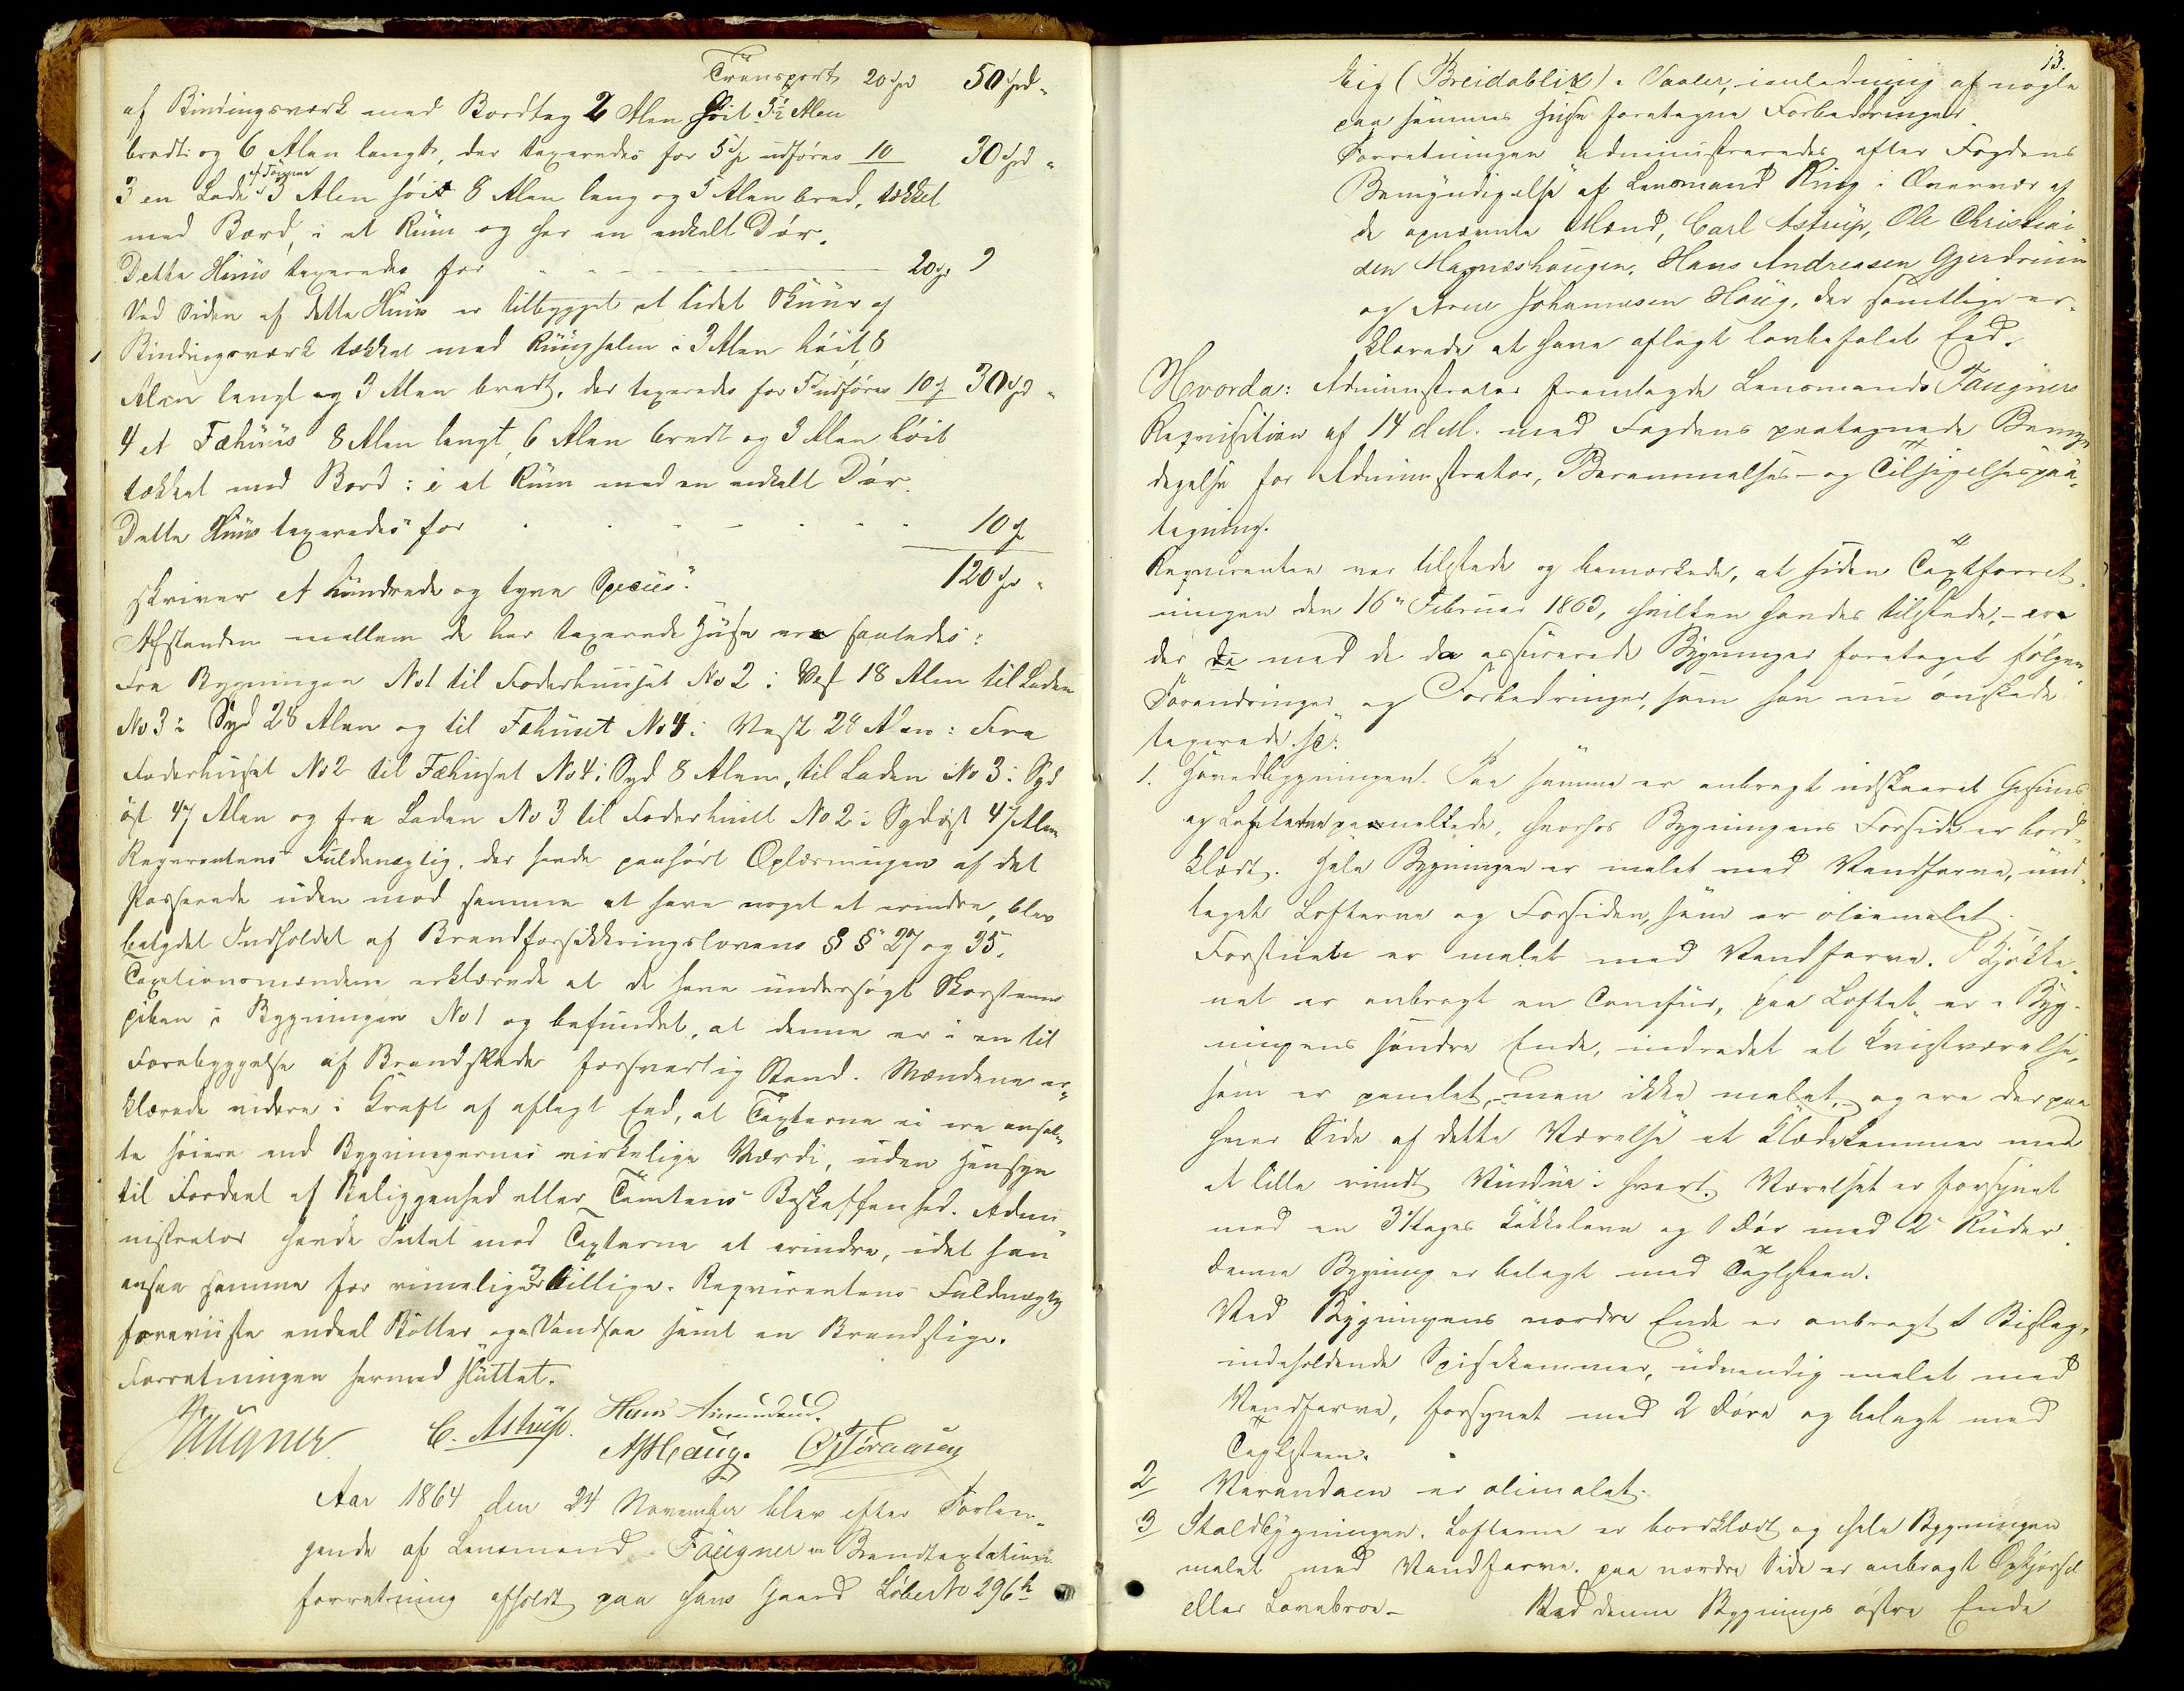 Transport 20 Spd 50 Spd "
af Bindingsværk med Bordtag 2 Alen høit 3½ Alen
bredt og 6 Alen langt, der taxeredes for 5 Sp udføres 10 30 Spd "
af Tømmer
3 en Lade 3 Alen høit 8 Alen lang og 5 Alen bred, tækket
med Bord, i et Rum og har en enkelt Dør.
Dette Huus taxeredes for - - - 20 Sp
Ved Siden af dette Huus er tilbygget et lidet Skuur af
Bindingsværk tækket med Rughalm: 3 Alen høit 8
Alen langt og 3 Alen bredt, der taxeredes for 5 udføres 10 Sp 30 Spd "
4 et Fæhuus 8 Alen langt, 6 Alen bredt og 3 Alen høit
tækket med Bord: i et Rum med en enkelt Dør.
Dette Huus taxeredes for - - - 10 Sp
skriver et hundrede og tyve Species. 120 Spd "
Afstanden mellem de her taxerede Huse ere saaledes:
Fra Bygningen No 1 til Foderhuuset No 2: Vest 18 Alen til Laden
No 3: Syd 28 Alen og til Fæhuset No 4: Vest 28 Alen: Fra
Foderhuset No 2 til Fæhuset No 4: Syd 8 Alen, til Laden No 3: Syd
øst 47 Alen og fra Laden No 3 til Foderhuset No 2: Sydøst 47 Alen
Reqvirentens Fuldmægtig, der havde paahørt Oplæsningen af det
Passerede uden mod samme at have noget at erindre, blev
betydet Indholdet af Brandforsikkringslovens §§ 27 og 35.
Taxationsmændene erklærede at de have undersøgt Skorsteens
piben i Bygningen No 1 og befundet, at denne er i en til
Forebyggelse af Brandskade forsvarlig Stand. Mændene er-
klærede videre i Kraft af aflagt Eed, at Taxterne ei ere ansat-
te høiere end Bygningernes virkelige Værdi, uden Hensyn
til Fordeel af Beliggenhed eller Tomtens Beskaffenhed. Admi-
nistrator havde Intet mod Taxterne at erindre, idet han
ansaa samme for rimelige og billige. Reqvirentens Fuldmægtig
foreviiste endeel Bøtter og Vandsaa samt en Brandstige.
Forretningen hermed sluttet.
Faugner C. Astrup. Hans Amundsen.
AJHaug. OToraasen
Aar 1864 den 24 November blev efter Forlan-
gende af Lensmand Faugner en Brandtaxtation
forretning afholdt paa hans Gaard Løber No 296 b
13.
kig (Breidablik) i Vaaler, ianledning af nogle
paa sammes Huse foretagne Forbedringer.
Forretningen administreredes efter Fogdens
Bemyndigelse af Lensmand Ring i Overvær af
de opnævnte Mænd, Carl Astrup, Ole Christian
sen Hagnæshaugen, Hans Andreasen Gjerdrum
og Arne Johannesen Haug, der samtlige er-
klærede at have aflagt lovbefalet Eed.
Hvorda: Administrator fremlagde Lensmand Faugners
Reqvisition af 14 d.M. med Fogdens paategnede Bemyn
digelse for Administrator, Berammelses- og Tilsigelsespaa-
tegning.
Reqvirenten var tilstede og bemærkede, at siden Taxtforret-
ningen den 16" Februar 1863, hvilken havdes tilstede, - ere
der med de da assurerede Bygninger foretaget følgende
Forandringer og Forbedringer, som han nu ønskede
taxerede, se:
1. Hovedbygningen. Paa samme er anbragt udskaaret Gesims
og Lofterne pannelede, hvorhos Bygningens Forside er bord-
klædt. Hele Bygningen er malet med Vandfarve, und-
taget Lofterne og Forsiden, som er oliemalet.
Forstuen er malet med Vandfarve. I Kjøkke-
net er anbragt en Comfur, paa Loftet er i Byg-
ningens søndre Ende, indredet et Kvistværelse,
som er panelet, men ikke malet, og ere der paa
hver Side af dette Værelse et Klædekammer med
et lille rundt Vindue i hvert. Værelset er forsynet
med en 3 Etages Kakkelovn og 1 Dør med 2 Ruder.
Denne Bygning er belagt med Taglsteen.
Ved Bygningens nordre Ende er anbragt 1 Bislag,
indeholdende Spisekammer, udvendig malet med
Vandfarve, forsynet med 2 Døre og belagt med
Taglsteen.
2 Verandaen er oliemalet.
3 Staldbygningen. Lofterne er bordklædt og hele Bygningen
malet med Vandfarve. paa nordre Side er anbragt Opkjørsel
eller Lavebroe - Ved denne Bygnings østre Ende